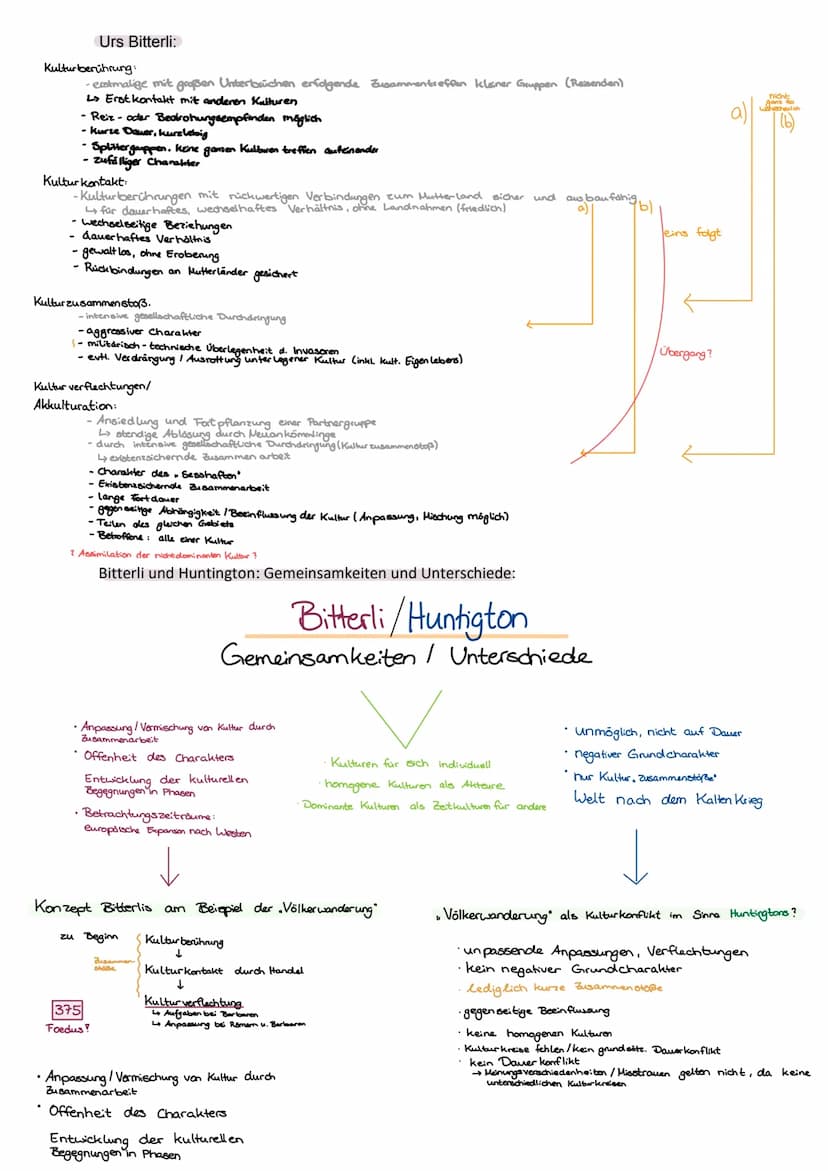 Urs Bitterli:
Kulturberührung:
- erstmalige mit großen Unterbrüchen erfolgende Zusammentreffen kleiner Gruppen (Reisenden)
↳ Erstkontakt mit anderen Kulturen
- Reiz- oder Bedrohungsempfinden möglich
- kurze Dauer, kurzlebig
- Splittergruppen. Keine ganzen Kulturen treffen aufeinander
- zufälliger Charakter
a)
nicht ganz so wahrscheinlich
(b)
Kulturkontakt:
- Kulturberührungen mit rückwertigen Verbindungen zum Mutterland sicher und ausbaufähig
↳ für dauerhaftes, wechselhaftes Verhältnis, ohne Landnahmen (friedlich)
a)
b)
- wechselseitige Beziehungen
- dauerhaftes Verhältnis
- gewaltlos, ohne Eroberung
- Rückbindungen an Mutterländer gesichert
eins folgt
Kulturzusammenstoß.
- intensive gesellschaftliche Durchdringung
- aggressiver Charakter
- militärisch-technische Überlegenheit d. Invasoren
- evtl. Verdrängung / Ausrottung unterlegener Kultur (inkl. kult. Eigenlebens)
Übergang?
Kulturverflechtungen/
Akkulturation:
- Ansiedlung und Fortpflanzung einer Partnergruppe
↳ stendige Ablösung durch Neuankömmlinge
- durch intensive gesellschaftliche Durchdringung (Kulturzusammenstoß)
↳ existenzsichernde Zusammenarbeit
- Charakter des „Sesshaften"
- Existenzsichernde Zusammenarbeit
- lange Fortdauer
- gegenseitige Abhängigkeit / Beeinflussung der Kultur (Anpassung, Mischung möglich)
- Teilen des gleichen Gebiets
- Betroffene: alle einer Kultur
? Assimilation der nichtdominanten Kultur?
Bitterli und Huntington: Gemeinsamkeiten und Unterschiede:
Bitterli/Huntigton
Gemeinsamkeiten / Unterschiede
· Anpassung/Vermischung von Kultur durch
Zusammenarbeit
· Offenheit des Charakters
Entwicklung der kulturellen
Begegnungen in Phasen
· Betrachtungszeiträume:
europäische Expansion nach Westen
· Kulturen für sich individuell
· homogene Kulturen als Akteure
· Dominante Kulturen als Zeitkulturen für andere
· unmöglich, nicht auf Dauer
· negativer Grundcharakter
· nur Kultur„zusammenstöße"
Welt nach dem Kalten Krieg
Konzept Bitterlis am Beispiel der „Völkerwanderung"
zu Beginn
Kulturberührung
↓
Zusammenstöße
Kulturkontakt durch Handel
↓
Kulturverflechtung
↳ Aufgaben bei Barbaren
↳ Anpassung bei Römern u. Barbaren
375
Foedus?
• Anpassung/Vermischung von Kultur durch
Zusammenarbeit
• Offenheit des Charakters
Entwicklung der kulturellen
Begegnungen in Phasen
„Völkerwanderung" als Kulturkonflikt im Sinne Huntingtons?
· unpassende Anpassungen, Verflechtungen
· kein negativer Grundcharakter
· lediglich kurze Zusammenstöße
· gegenseitige Beeinflussung
· keine homogenen Kulturen
· Kulturkreise fehlen/kein grundsätz. Dauerkonflikt
· kein Dauerkonflikt
→ Meinungsverschiedenheiten / Misstrauen gelten nicht, da keine
unterschiedlichen Kulturkreisen